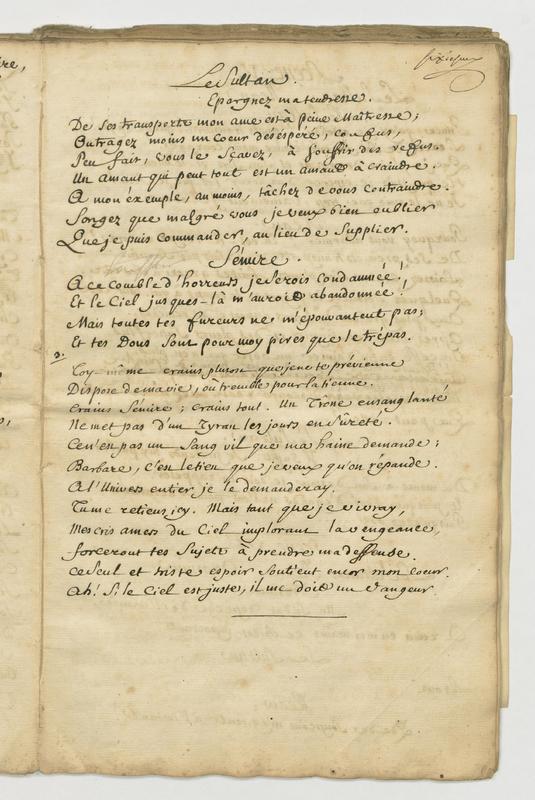 sixieme
Le Sultan.
Epargnez ma tendresse.
De ses transports mon ame est à peine Maîtresse;
Outragez moins un Coeur désespéré, confus,
Peu fait, vous le Sçavez, à souffrir des refus.
Un amant qui peut tout est un amant à craindre.
A mon éxemple, au moins, tâchez de vous contraindre.
Songez que malgré vous je veux bien oublier
Que je puis commander, au lieu de Supplier.
Sémire.
A ce comble d'horreurs je serois condamnée!
Et le Ciel jusques-là m'auroit abandonnée!
Mais toutes tes fureurs ne m'épouvantent pas;
Et tes Dons Sont pour moy pires que le trépas.
Toy-même crains plutost que je ne te prévienne
Dispose de ma vie, où tremble pour la tienne.
Crains Sémire; crains tout. Un Trône ensanglanté
Ne met pas d'un Tyran les jours en Sûreté.
Ce n'en pas un Sang vil que ma haine demande;
Barbare, c'est le tien que je veux qu'on répande.
A l'Univers entier je le demanderay.
Tu me retiens icy. Mais tant que je vivray,
Mes cris amers du Ciel implorant la vengeance,
forceront tes Sujets à prendre ma deffense.
Ce seul et triste espoir Soutient encor mon Coeur.
Ah! Si le Ciel est juste, il me doit un Vangeur.